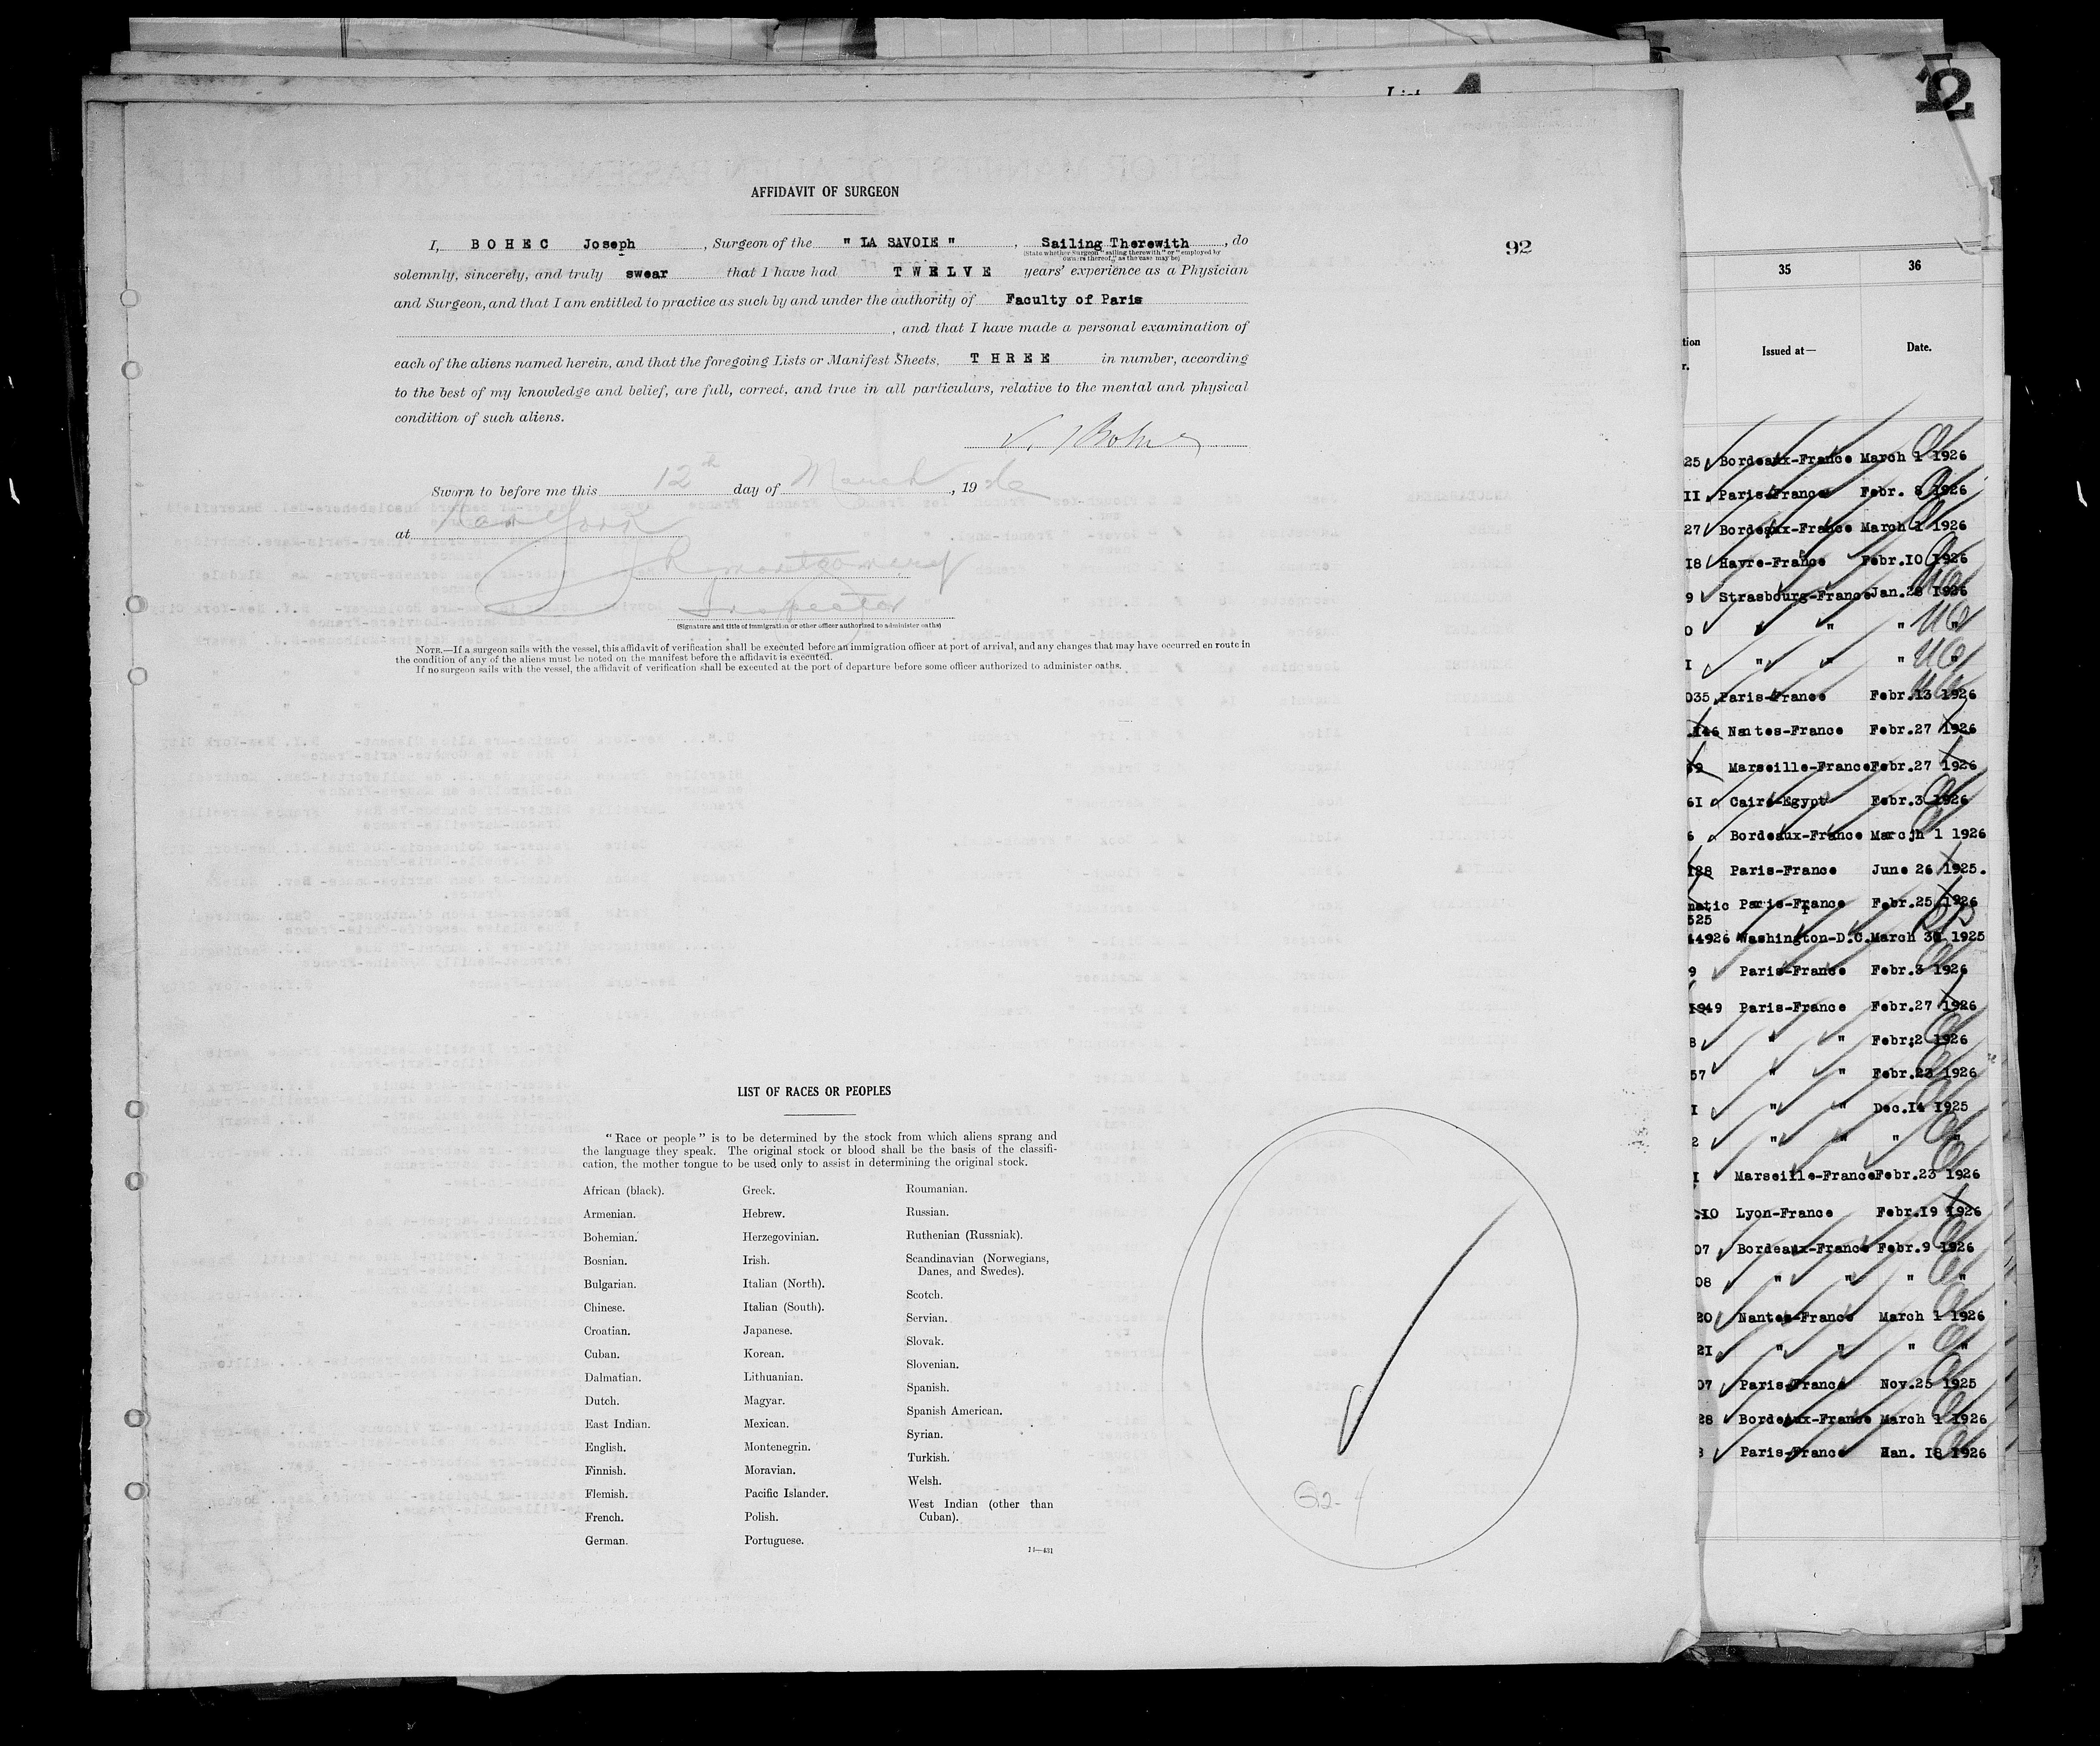 12
List
AFFIDAVIT OF SURGEON
92
I, BOHEC Joseph , Surgeon of the " LA SAVOIE " , Sailing Therewith , do
(State whether Surgeon "sailing therewith" or "employed by
owners thereof," as the case may be)
solemnly, sincerely, and truly swear that I have had TWELVE years' experience as a Physician
and Surgeon, and that I am entitled to practice as such by and under the authority of Faculty of Paris
, and that I have made a personal examination of
each of the aliens named herein, and that the foregoing Lists or Manifest Sheets, THREE in number, according
to the best of my knowledge and belief, are full, correct, and true in all particulars, relative to the mental and physical
condition of such aliens.
Sworn to before me this 12th day of March , 19 26
at New York
J R Montgomery
Inspector
(Signature and title of immigration or other officer authorized to administer oaths)
NOTE.—If a surgeon sails with the vessel, this affidavit of verification shall be executed before an immigration officer at port of arrival, and any changes that may have occurred en route in
the condition of any of the aliens must be noted on the manifest before the affidavit is executed.
If no surgeon sails with the vessel, the affidavit of verification shall be executed at the port of departure before some officer authorized to administer oaths.
LIST OF RACES OR PEOPLES
"Race or people" is to be determined by the stock from which aliens sprang and
the language they speak. The original stock or blood shall be the basis of the classifi-
cation, the mother tongue to be used only to assist in determining the original stock.
African (black).
Armenian.
Bohemian.
Bosnian.
Bulgarian.
Chinese.
Croatian.
Cuban.
Dalmatian.
Dutch.
East Indian.
English.
Finnish.
Flemish.
French.
German.
Greek.
Hebrew.
Herzegovinian.
Irish.
Italian (North).
Italian (South).
Japanese.
Korean.
Lithuanian.
Magyar.
Mexican.
Montenegrin.
Moravian.
Pacific Islander.
Polish.
Portuguese.
Roumanian.
Russian.
Ruthenian (Russniak).
Scandinavian (Norwegians,
Danes, and Swedes).
Scotch.
Servian.
Slovak.
Slovenian.
Spanish.
Spanish American.
Syrian.
Turkish.
Welsh.
West Indian (other than
Cuban).
14—431
35 36
Issued at— Date.
25 Bordeaux-France March 1 1926
II Paris-France Febr. 8 1926
27 Bordeaux-France March 1 1926
18 Havre-France Febr.10 1926
9 Strasbourg-France Jan.28 1926
0 " " "
I " " " "
035 Paris-France Febr.13 1926
146 Nantes-France Febr.27 1926
Marseille-France Febr.27 1926
61 Caire-Egypt Febr.3 1926
6 Bordeaux-France March 1 1926
128 Paris-France June 26 1925.
matic Paris-France Febr.25 1926
525
44926 Washington-D.C. March 3 1925
9 Paris-France Febr.3 1926
1949 Paris-France Febr.27 1926
8 " " Febr;2 1926
57 " " Febr.23 1926
I " " Dec.14 1925
2 " " " "
I Marseille-France Febr.23 1926
.10 Lyon-France Febr.19 1926
07 Bordeaux-France Febr.9 1926
08 " " " "
20 Nantes-France March 1 1926
21 " " " "
07 Paris-France Nov.25 1925
28 Bordeaux-France March 1 1926
8 Paris-France Han. 18 1926